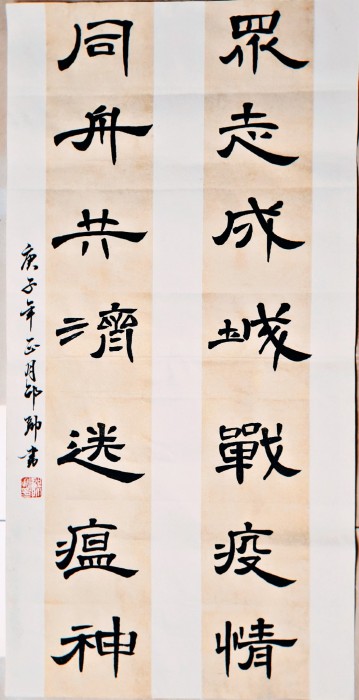 眾志成城戰疫情
同舟共濟送瘟神
庚子年正月邵帥書